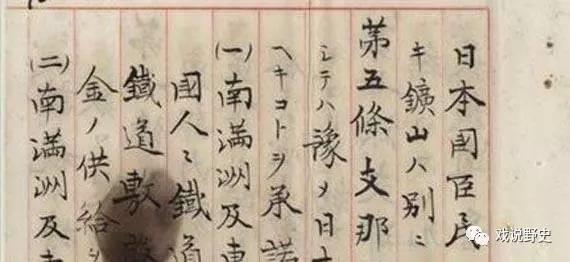 日本國臣民
キ鑛山ハ別ニ
第五條支那
シテハ豫メ日
ヘキコトヲ承諾
(一)南満洲及東
國人ニ鐵道
鐵道敷設
金ノ供給
(二)南満洲及東
戏说野史